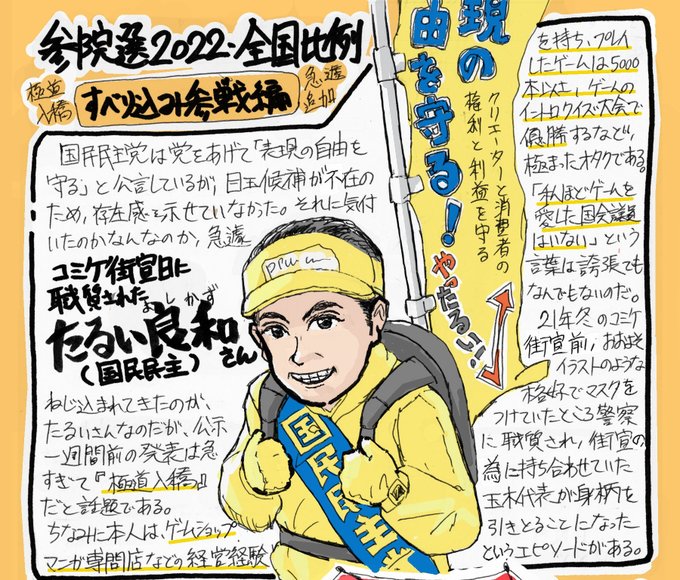 参院選2022・全国比例
極道入稿
すべり込み参戦編
急遽追加
国民民主党は党をあげて「表現の自由を
守る」と公言しているが、目玉候補が不在の
ため、存在感を示せていなかった。それに気付
いたのかなんなのか、急遽
コミケ街宣日に
職質された
よしかず
たるい良和
さん
(国民民主)
ねじ込まれてきたのが、
たるいさんなのだが、公示
一週間前の発表は急
すぎて『極道入稿』
だと話題である。
ちなみに本人は、ゲームショップ、
マニア専門店などの経営経験
を持ち、プレイ
したゲームは5000
本以上、ゲームの
イントロクイズ大会で
優勝するなど、
極まったオタクである。
「私ほどゲームを
愛した国会議員
はいない」という
言葉は誇張でも
なんでもないのだ。
21年冬のコミケ
街宣前、おおよそ
イラストのような
格好でマスクを
つけていたところ警察
に職質され、街宣の
為に持ち合わせていた
玉木代表が身柄を
引きとることになった
というエピソードがある。
現の
由を守る!
クリエーターと消費者の
権利と利益を守る
やったるい!
国民民主